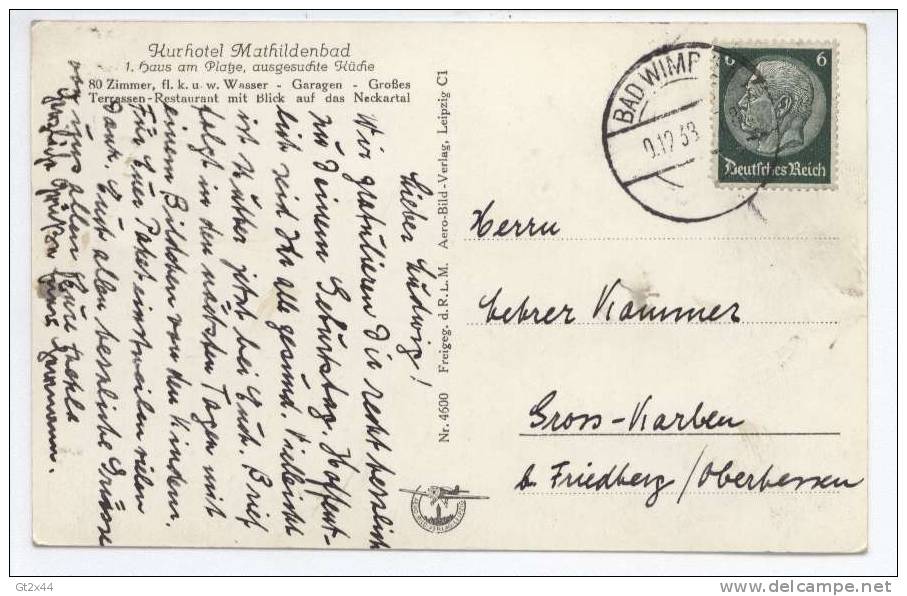 Kurhotel Mathildenbad
1. Haus am Platze, ausgesuchte Küche
80 Zimmer, fl. k. u. w. Wasser - Garagen - Großes
Terrassen-Restaurant mit Blick auf das Neckartal
Lieber Ludwig!
Wir gratulieren Dir recht herzlich
zu Deinem Geburtstag. Hoffent-
lich seid Ihr alle gesund. Vielleicht
ist Mutter jetzt bei Euch. Brief
folgt in den nächsten Tagen mit
einem Bildchen von den Kindern.
Für Euer Paket einstweilen vielen
Dank. Euch allen herzliche Grüsse
von uns allen
Herzliche Grüße
Nr. 4600 Freigeg. d. R. L. M. Aero-Bild-Verlag, Leipzig C1
BAD WIMP
6 6
Deutsches Reich
Herrn
Lehrer Kammer
Gross-Karben
b. Friedberg/Oberhessen
Gt2x44
www.delcampe.net